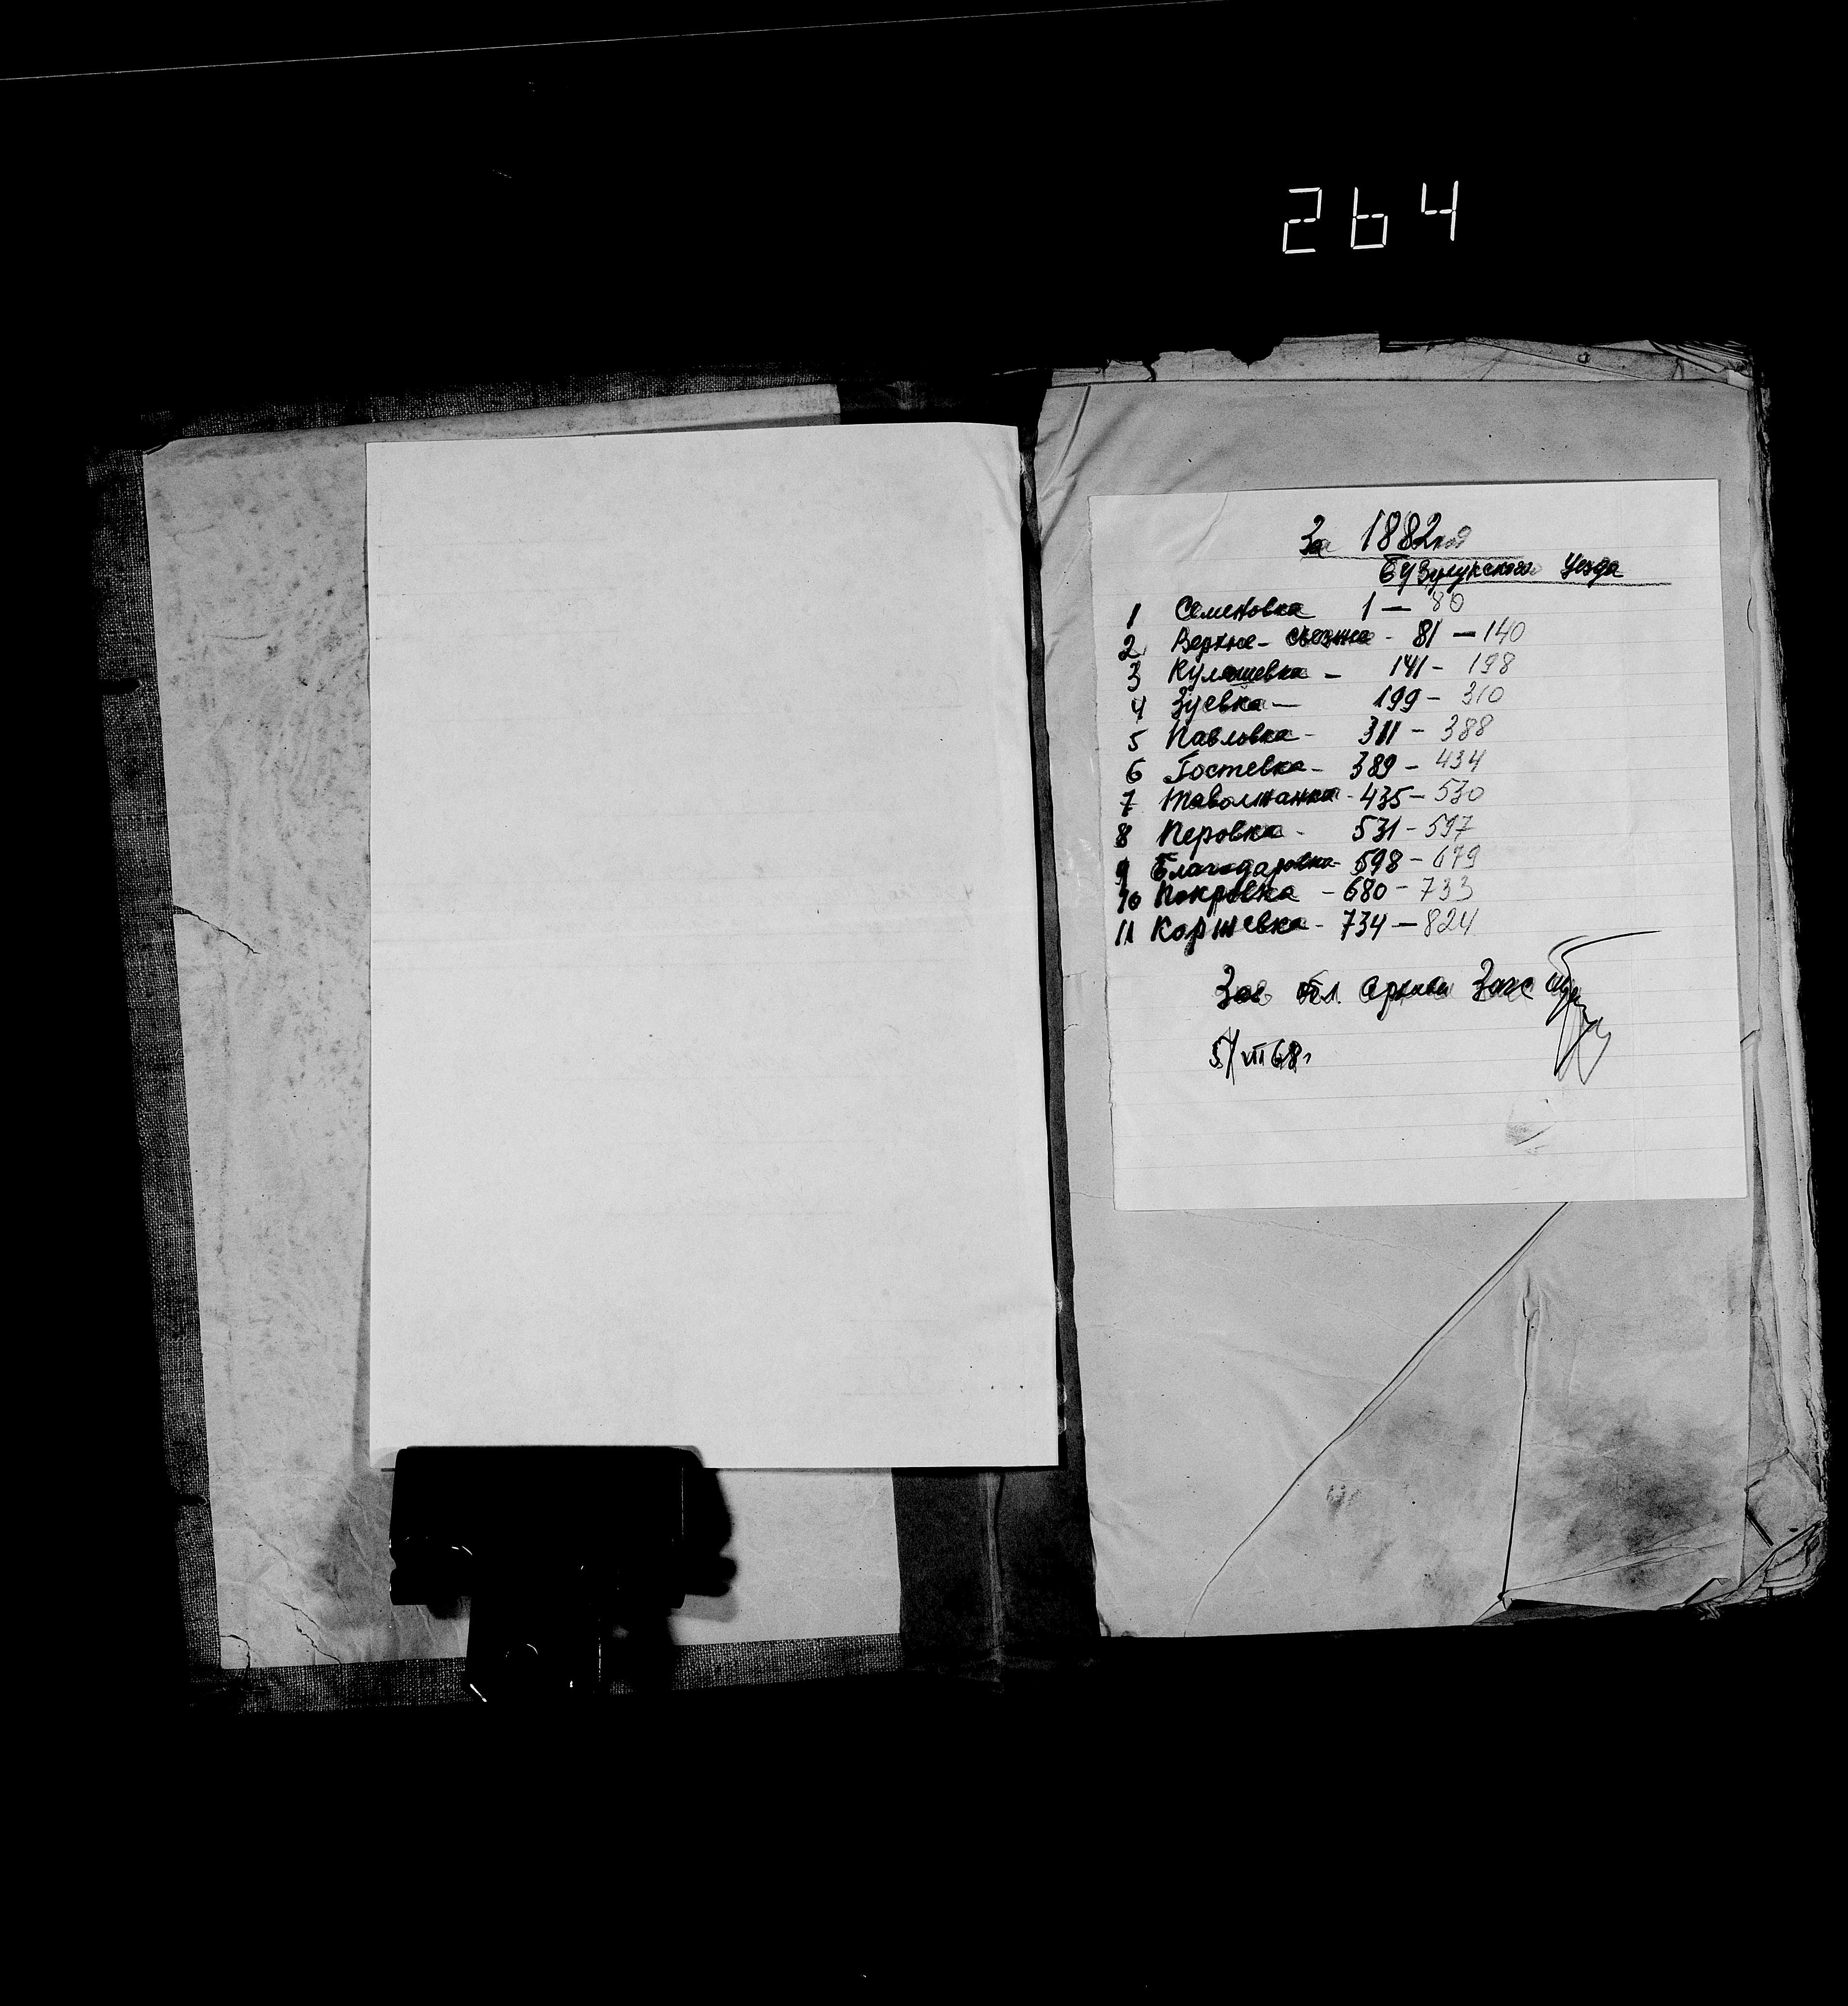 264
За 1882 год
Бузулукского Уезда
1 Семеновка 1 — 80
2 Верхне - съезжее - 81 — 140
3 Кулешевка - 141 - 198
4 Зуевка — 199 - 310
5 Павловка - 311 - 388
6 Гостевка - 389 - 434
7 Таволжанка - 435 - 530
8 Перовка - 531 - 597
9 Благодаровка - 598 - 679
10 Покровка - 680 - 733
11 Коржевка - 734 — 824
Зав обл. архива Загс
5/VII 68г